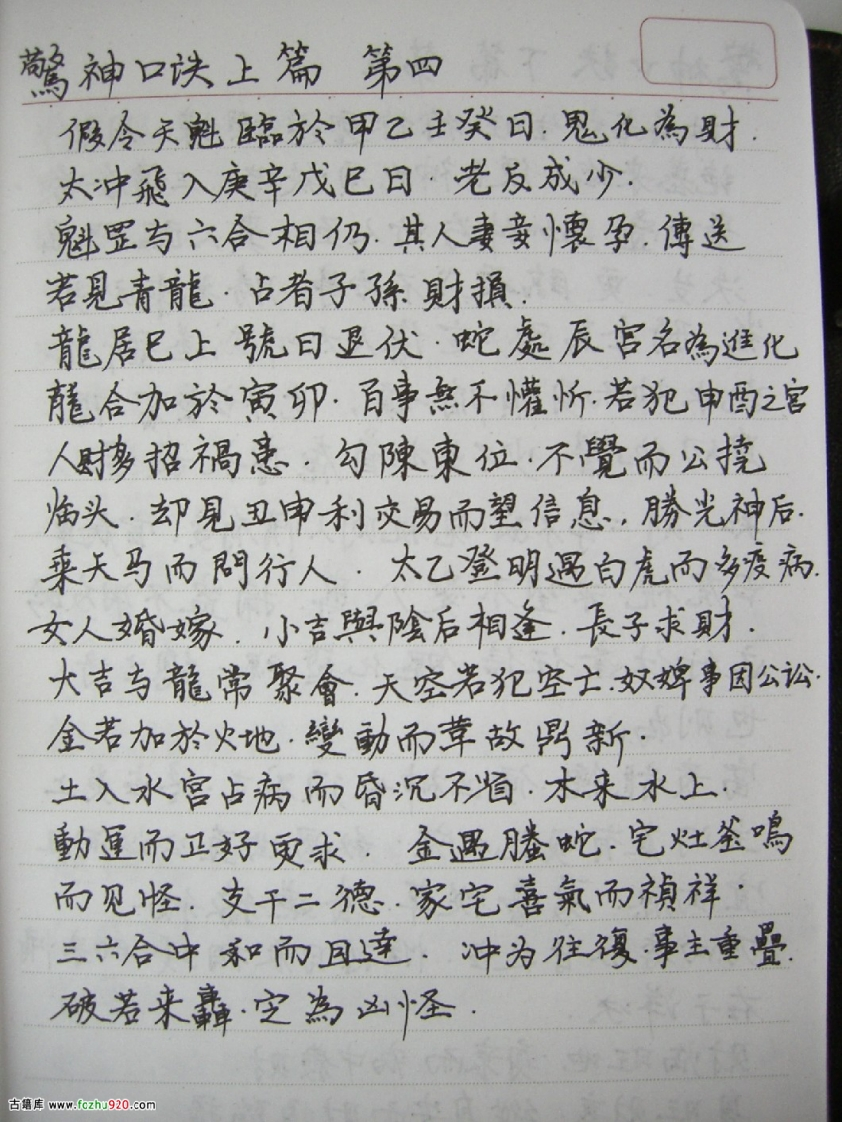 驚神口诀上篇 第四
假令天魁臨於甲乙壬癸日.鬼化為財.
太冲飛入庚辛戊巳日.老反成少.
魁罡与六合相仍.其人妻妾懷孕.傳送
若見青龍.占者子孫財損.
龍居巳上號曰退伏.蛇處辰宫名為進化
龍合加於寅卯.百事無不懽忻.若犯申酉之宫
人財多招禍患.勾陳東位.不覺而公撓
临头.却見丑申利交易而望信息,勝光神后.
乘天马而問行人.太乙登明遇白虎而多疫病.
女人婚嫁.小吉與陰后相逢.長子求財.
大吉与龍常聚會.天空若犯空亡.奴婢事因公讼.
金若加於火地.變動而革故鼎新.
土入水宫占病而昏沉不順.木来水上.
動運而正好更求.金遇螣蛇.宅灶釜鳴
而见怪.支干二德.家宅喜氣而禎祥.
三六合中和而且達.冲为往復.事主重疊.
破若来轟.定為凶怪.
古籍库 www.fozhu920.com